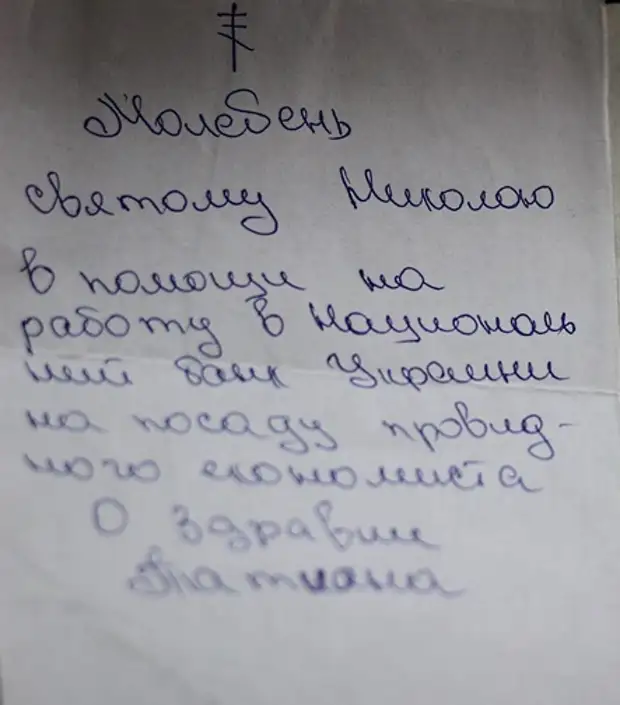 Молебень
святому Николаю
в помощи на
работу в националь
ний банк Украини
на посаду провид-
ного економиста
О здравии
Татиана